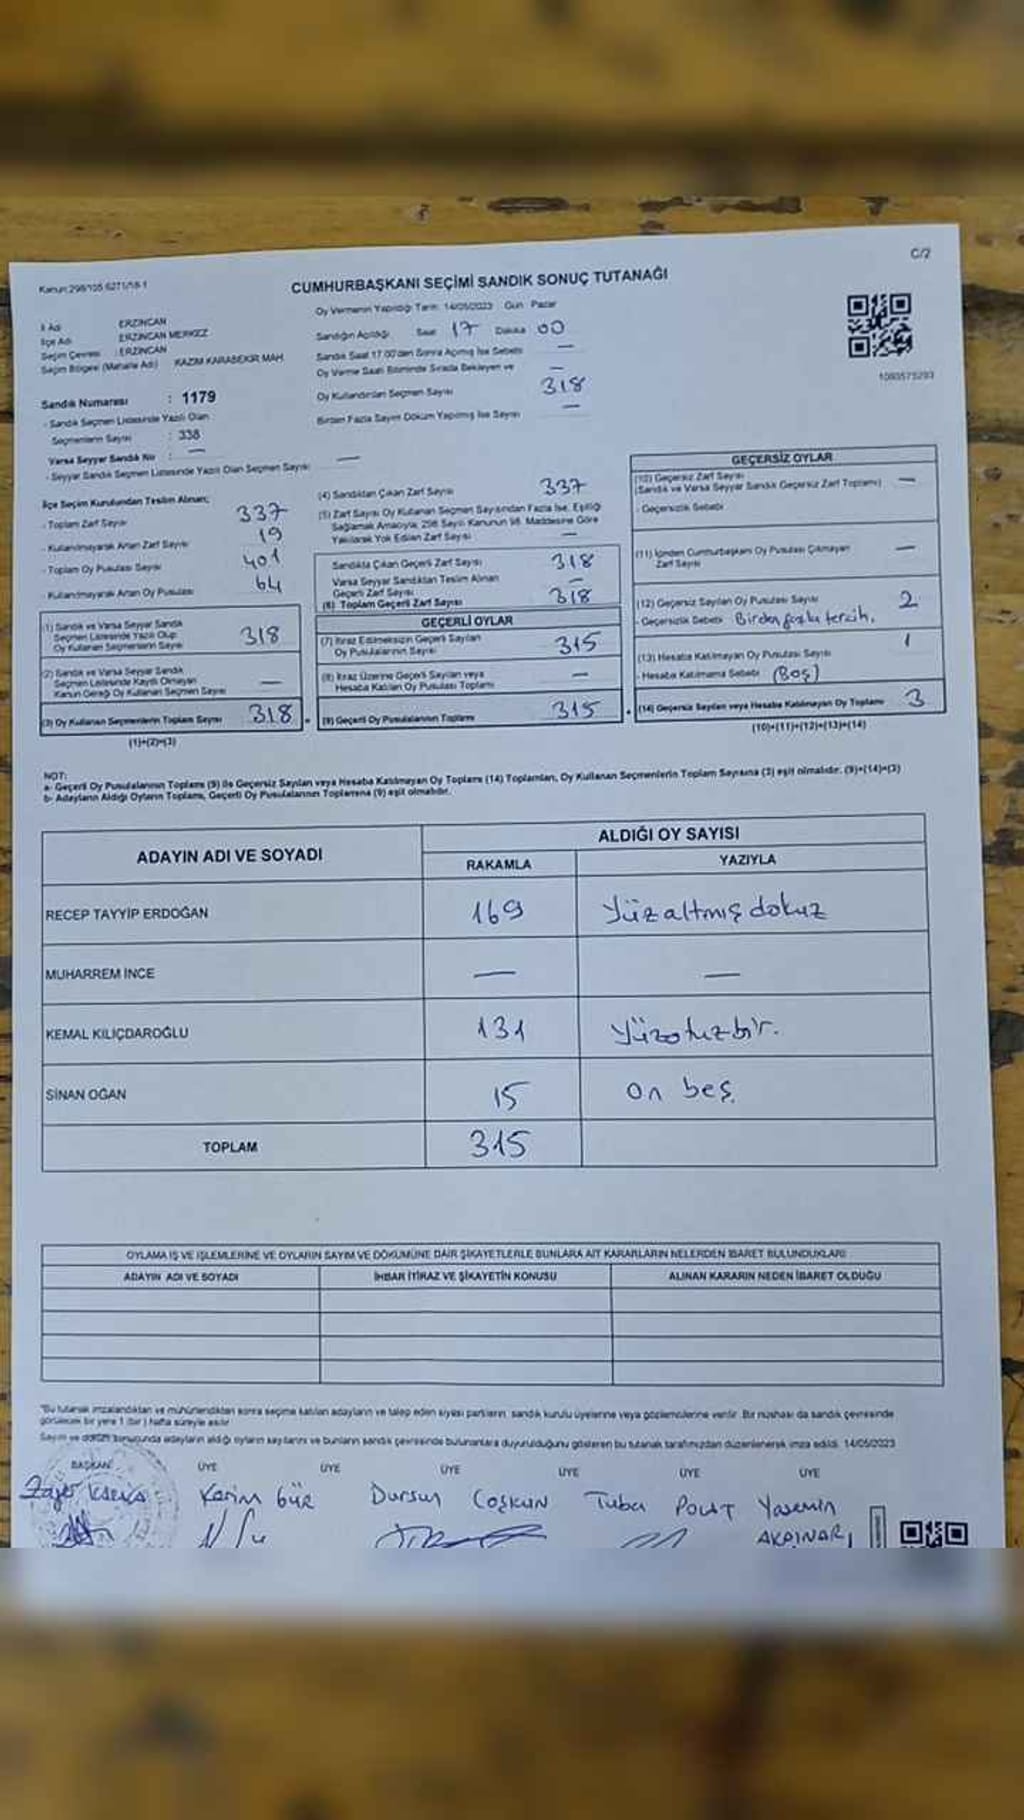 C/2
Kanun:298/105 6271/18-1
CUMHURBAŞKANI SEÇİMİ SANDIK SONUÇ TUTANAĞI
İl Adı ERZİNCAN
İlçe Adı ERZİNCAN MERKEZ
Seçim Çevresi : ERZİNCAN
Seçim Bölgesi (Mahalle Adı) KAZIM KARABEKİR MAH.
Sandık Numarası : 1179
- Sandık Seçmen Listesinde Yazılı Olan
Seçmenlerin Sayısı : 338
Varsa Seyyar Sandık No : —
- Seyyar Sandık Seçmen Listesinde Yazılı Olan Seçmen Sayısı —
Oy Vermenin Yapıldığı Tarih: 14/05/2023 Gün Pazar
Sandığın Açıldığı Saat 17 Dakika 00
Sandık Saat 17.00'den Sonra Açılmış İse Sebebi —
Oy Verme Saati Bitiminde Sırada Bekleyen ve —
Oy Kullandırılan Seçmen Sayısı 318
Birden Fazla Sayım Döküm Yapılmış İse Sayısı —
1093575293
İlçe Seçim Kurulundan Teslim Alınan;
- Toplam Zarf Sayısı 337
- Kullanılmayarak Artan Zarf Sayısı 19
- Toplam Oy Pusulası Sayısı 401
- Kullanılmayarak Artan Oy Pusulası 64
(1) Sandık ve Varsa Seyyar Sandık
Seçmen Listesinde Yazılı Olup
Oy Kullanan Seçmenlerin Sayısı 318
(2) Sandık ve Varsa Seyyar Sandık
Seçmen Listesinde Kayıtlı Olmayan
Kanun Gereği Oy Kullanan Seçmen Sayısı —
(3) Oy Kullanan Seçmenlerin Toplam Sayısı 318
(1)+(2)=(3)
(4) Sandıktan Çıkan Zarf Sayısı 337
(5) Zarf Sayısı Oy Kullanan Seçmen Sayısından Fazla İse, Eşitliği
Sağlamak Amacıyla, 298 Sayılı Kanunun 98. Maddesine Göre
Yakılarak Yok Edilen Zarf Sayısı —
Sandıkta Çıkan Geçerli Zarf Sayısı 318
Varsa Seyyar Sandıktan Teslim Alınan
Geçerli Zarf Sayısı —
(6) Toplam Geçerli Zarf Sayısı 318
GEÇERLİ OYLAR
(7) İtiraz Edilmeksizin Geçerli Sayılan
Oy Pusulalarının Sayısı 315
(8) İtiraz Üzerine Geçerli Sayılan veya
Hesaba Katılan Oy Pusulası Toplamı —
(9) Geçerli Oy Pusulalarının Toplamı 315
GEÇERSİZ OYLAR
(10) Geçersiz Zarf Sayısı
(Sandık ve Varsa Seyyar Sandık Geçersiz Zarf Toplamı) —
- Geçersizlik Sebebi
(11) İçinden Cumhurbaşkanı Oy Pusulası Çıkmayan
Zarf Sayısı —
(12) Geçersiz Sayılan Oy Pusulası Sayısı 2
- Geçersizlik Sebebi Birden fazla tercih.
(13) Hesaba Katılmayan Oy Pusulası Sayısı 1
- Hesaba Katılmama Sebebi (Boş)
(14) Geçersiz Sayılan veya Hesaba Katılmayan Oy Toplamı 3
(10)+(11)+(12)+(13)=(14)
NOT:
a- Geçerli Oy Pusulalarının Toplamı (9) ile Geçersiz Sayılan veya Hesaba Katılmayan Oy Toplamı (14) Toplamları, Oy Kullanan Seçmenlerin Toplam Sayısına (3) eşit olmalıdır. (9)+(14)=(3)
b- Adayların Aldığı Oyların Toplamı, Geçerli Oy Pusulalarının Toplamına (9) eşit olmalıdır.
ADAYIN ADI VE SOYADI
ALDIĞI OY SAYISI
RAKAMLA YAZIYLA
RECEP TAYYİP ERDOĞAN 169 Yüzaltmış dokuz
MUHARREM İNCE — —
KEMAL KILIÇDAROĞLU 131 Yüzotuzbir.
SİNAN OĞAN 15 on beş.
TOPLAM 315
OYLAMA İŞ VE İŞLEMLERİNE VE OYLARIN SAYIM VE DÖKÜMÜNE DAİR ŞİKAYETLERLE BUNLARA AİT KARARLARIN NELERDEN İBARET BULUNDUKLARI
ADAYIN ADI VE SOYADI İHBAR İTİRAZ VE ŞİKAYETİN KONUSU ALINAN KARARIN NEDEN İBARET OLDUĞU
*Bu tutanak imzalandıktan ve mühürlendikten sonra seçime katılan adayların ve talep eden siyasi partilerin, sandık kurulu üyelerine veya gözlemcilerine verilir. Bir nüshası da sandık çevresinde
görülecek bir yere 1 (bir) hafta süreyle asılır.
Sayım ve döküm sonucunda adayların aldığı oyların sayılarını ve bunların sandık çevresinde bulunanlara duyurulduğunu gösteren bu tutanak tarafımızdan düzenlenerek imza edildi. 14/05/2023
BAŞKAN ÜYE ÜYE ÜYE ÜYE ÜYE ÜYE
Kerim Gür Dursun Coşkun Tuba Polat Yasemin
AKPINAR